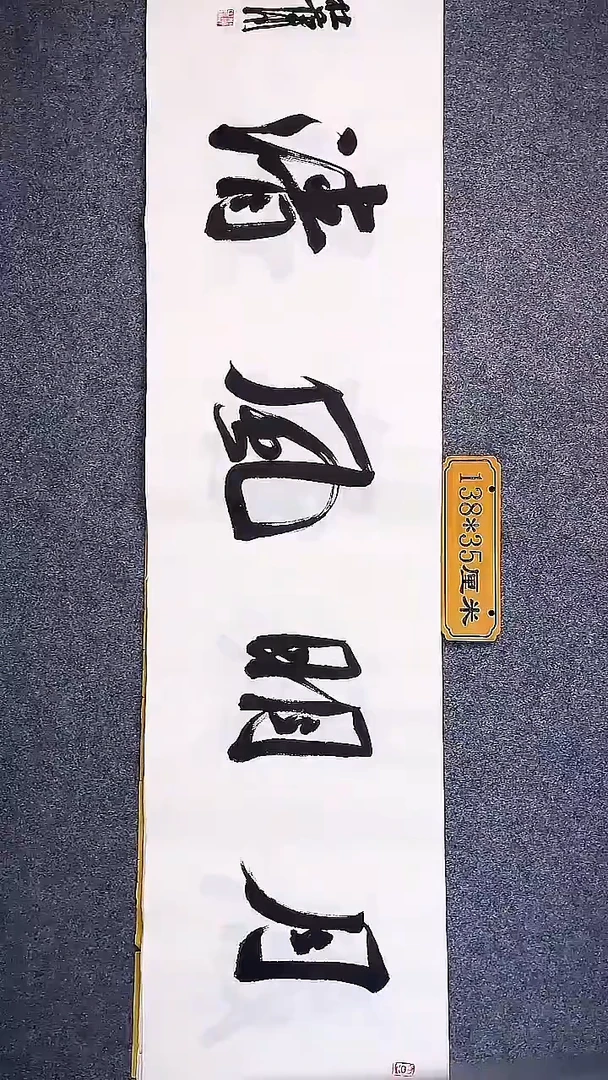 清风明月
138*35厘米